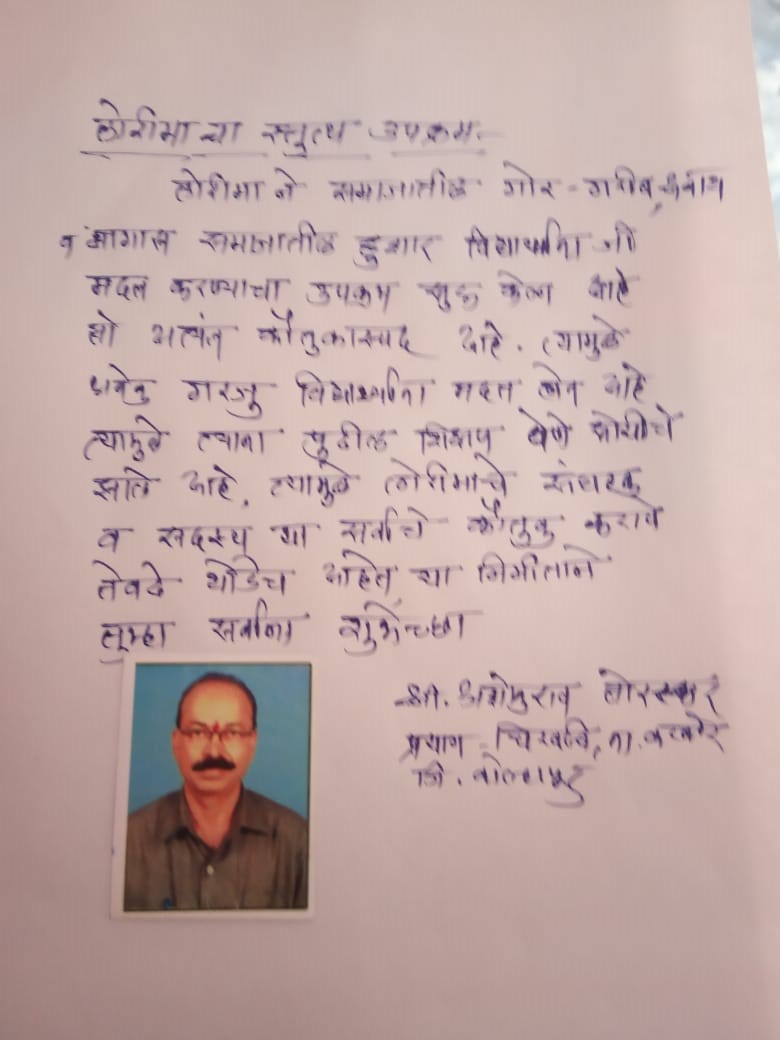 लोरीमाचा स्तुत्य उपक्रम.
लोरीमाने समाजातील गोर-गरीब, अनाथ
व मागास समाजातील हुशार विद्यार्थ्यांना जी
मदत करण्याचा उपक्रम सुरू केला आहे
तो अत्यंत कौतुकास्पद आहे. त्यामुळे
अनेक गरजु विद्यार्थ्यांना मदत होत आहे
त्यामुळे त्यांना पुढील शिक्षण घेणे सोयीचे
झाले आहे, त्यामुळे लोरीमाचे संचालक
व सदस्य या सर्वांचे कौतुक करावे
तेवढे थोडेच आहेत, या निमीत्ताने
तुम्हा सर्वांना शुभेच्छा
श्री.
प्रयाग चिखली, ता. करवीर
जि. कोल्हापूर